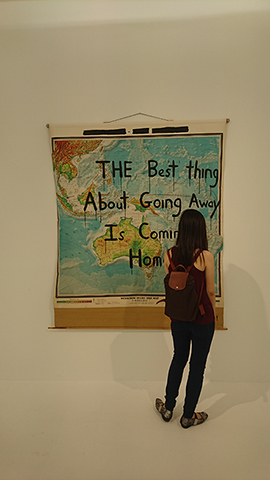 THE Best thing
About Going Away
Is Comin
Hom